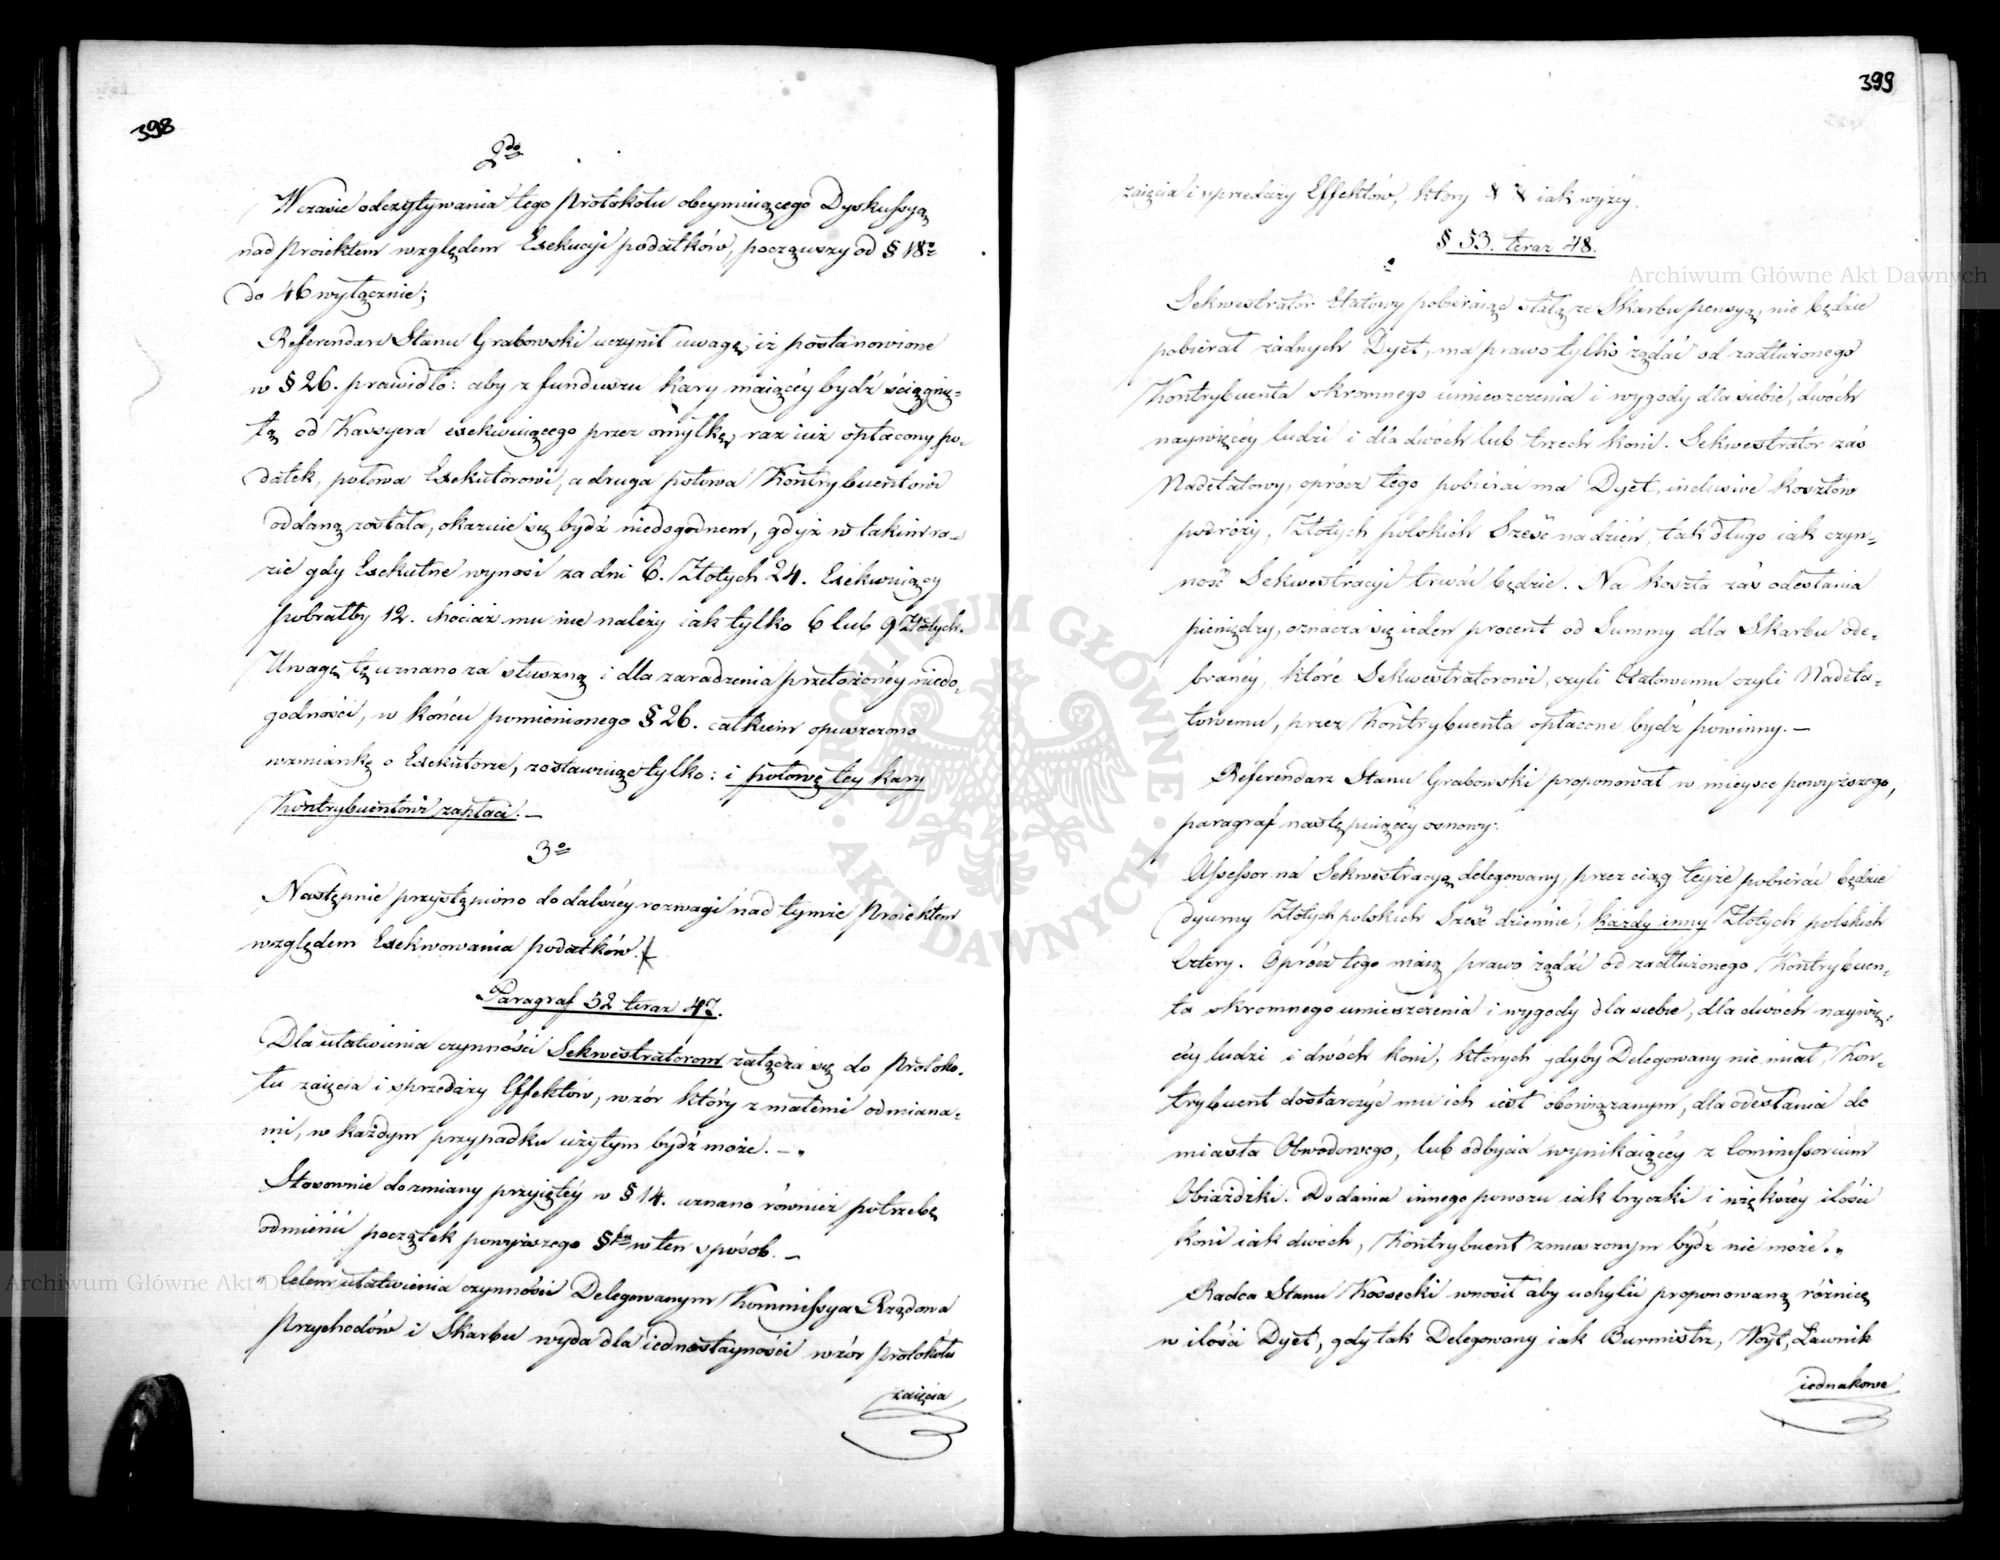 398
2do
W czasie odczytywania tego Protokołu obeymuiącego Dyskussyą
nad Proiektem względem Exekucyi podatków, począwszy od § 18o
do 46 wyłącznie;
Referendarz Stanu Grabowski uczynił uwagę, iż postanowione
w § 26. prawidło: aby z funduszu kary maiącéy bydź ściągnię-
tą od Kassyera exekwuiącego przez omyłkę, raz iuż opłacony po-
datek, połowa Exekutorowi, a druga połowa Kontrybuentowi
oddaną została, okazuie się bydź niedogodnem, gdyż w takim ra-
zie gdy Exekutne wynosi za dni 6. Złotych 24. Exekwuiący
pobrałby 12. chociaż mu nie należy iak tylko 6 lub 9 Złotych.
Uwagę tę uznano za słuszną i dla zaradzenia przełożonéy niedo-
godności, w końcu pomienionego § 26. całkiem opuszczono
wzmiankę o Exekutorze, zostawuiąc tylko: i połowę tey kary
Kontrybuentowi zapłaci. —
3o
Następnie przystąpiono do dalszéy rozwagi nad tymże Proiektem
względem Exekwowania podatków.
Paragraf 52 teraz 47.
Dla ułatwienia czynności Sekwestratorom załącza się do Protoko-
łu zaięcia i sprzedaży Effektów, wzór który z małemi odmiana-
mi, w każdym przypadku użytym bydź może. —
Stosownie do zmiany przyiętéy w § 14. uznano również potrzebę
odmienić początek powyższego §fu w ten sposób. —
„Celem ułatwienia czynności Delegowanym Kommissya Rządowa
Przychodów i Skarbu wyda dla iednostayności wzór protokołu
zaięcia
399
zaięcia i sprzedaży Effektów, który & & iak wyżéy.
§ 53. teraz 48.
Sekwestrator Etatowy pobieraiąc stałą ze Skarbu pensyą, nie będzie
pobierał żadnych Dyet, ma prawo tylko żądać od zadłużonego
Kontrybuenta skromnego umieszczenia i wygody dla siebie, dwóch
naywięcéy ludzi i dla dwóch lub trzech koni. Sekwestrator zaś
Nadetatowy, oprócz tego pobierać ma Dyet, inclusive kosztów
podróży, Złotych polskich Sześć na dzień, tak długo iak czyn-
ność Sekwestracyi trwać będzie. Na koszta zaś odesłania
pieniędzy, oznacza się ieden procent od Summy dla Skarbu ode-
branéy, które Sekwestratorowi, czyli Etatowemu czyli Nadeta-
towemu, przez Kontrybuenta opłacone bydź powinny. —
Referendarz Stanu Grabowski proponował w mieysce powyższego,
paragraf następuiącéy osnowy:
Assessor na Sekwestracyą delegowany, przez ciąg teyże pobierać będzie
dyurny Złotych polskich Sześć dziennie, każdy inny Złotych polskich
Cztery. Oprócz tego maią prawo żądać od zadłużonego Kontrybuen-
ta skromnego umieszczenia i wygody dla siebie, dla dwóch naywię-
céy ludzi i dwóch koni, których gdyby Delegowany nie miał, Kon-
trybuent dostarczyć mu ich iest obowiązanym, dla odesłania do
miasta Obwodowego, lub odbycia wynikaiącéy z Commissorium
Obiażdżki. Do dania innego powozu iak bryczki i większéy ilości
koni iak dwóch, Kontrybuent zmuszonym bydź nie może.„
Radca Stanu Kossecki wnosił aby uchylić proponowaną różnicę
w ilości Dyet, gdy tak Delegowany iak Burmistrz, Woyt, Ławnik
iednakowe
Archiwum Główne Akt Dawnych
Archiwum Główne Akt Dawnych
ARCHIWUM GŁÓWNE AKT DAWNYCH